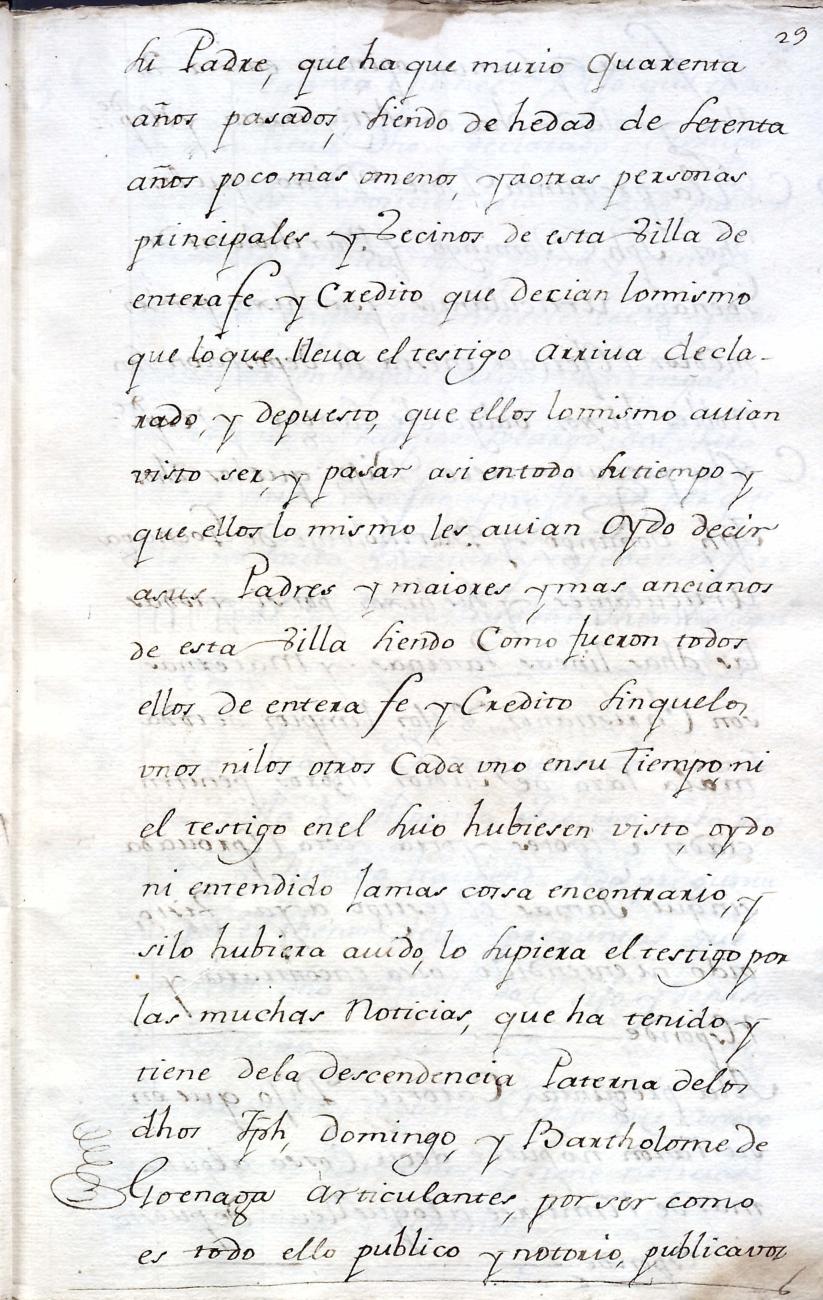 29
su Padre, que ha que murio Quarenta
años pasados, siendo de hedad de setenta
años poco mas omenos, yaotras personas
principales y Vecinos de esta Villa de
enterafe y Credito que decian lomismo
que lo que lleva el testigo arriva decla-
rado, y depuesto, que ellos lomismo auian
visto ser, y pasar asi entodo sutiempo y
que ellos lo mismo les auian Oydo decir
asus Padres y maiores ymas ancianos
de esta Villa siendo Como fueron todos
ellos de entera fe y Credito sinquelos
vnos nilos otros Cada vno ensu Tiempo, ni
el testigo enel suio hubiesen visto, oydo
ni entendido Jamas cossa encontrario, y
silo hubiera auido, lo supiera el testigo por
las muchas Noticias, que ha tenido y
tiene dela descendencia Paterna delos
dhos Jph, Domingo, y Bartholome de
Goenaga articulantes, por ser como
es todo ello publico ynotorio, publicavoz